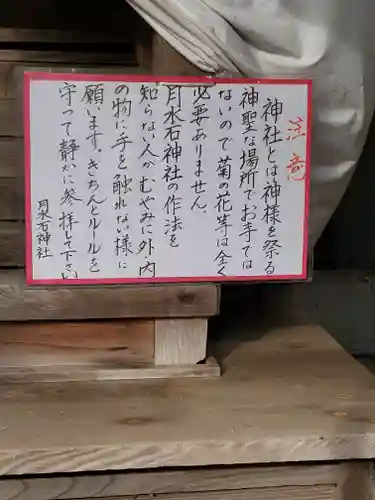 注意
神社とは神様を祭る
神聖な場所でお手ては
ないので菊の花等は全く
必要ありません。
月水石神社の作法を
知らない人がむやみに外、内
の物に手を触れない様に
願います。きちんとルールを
守って静かに参拝して下さい
月水石神社